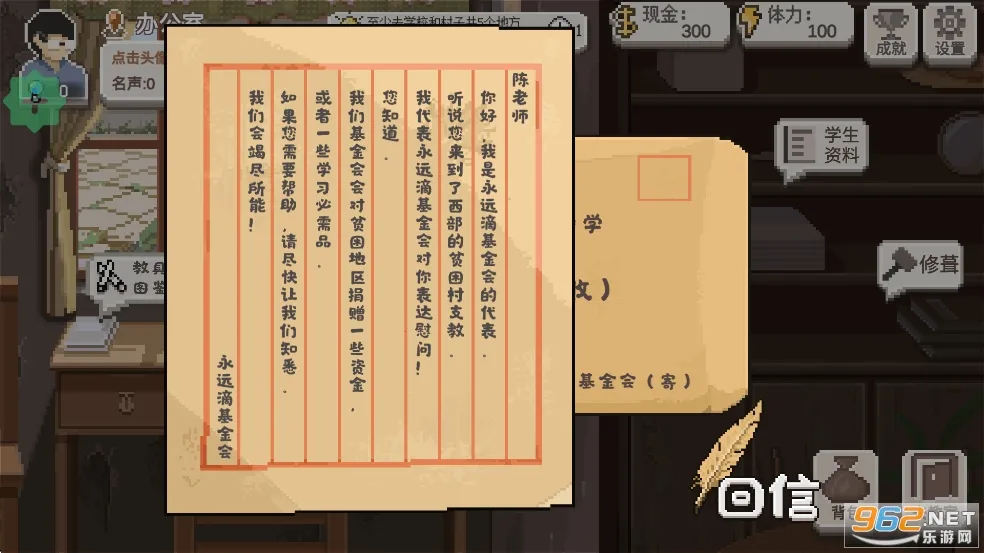 办公室
点击头像
名声:0
0
至少去学校和村子共5个地方
1
现金:
300
体力:
100
成就
设置
陈老师
你好,我是永远滴基金会的代表.
听说您来到了西部的贫困村支教.
我代表永远滴基金会对你表达慰问!
您知道.
我们基金会会对贫困地区捐赠一些资金,
或者一些学习必需品.
如果您需要帮助,请尽快让我们知悉.
我们会竭尽所能!
永远滴基金会
学
收)
基金会(寄)
学生
资料
修葺
教具
图鉴
回信
背包
962.NET
乐游网